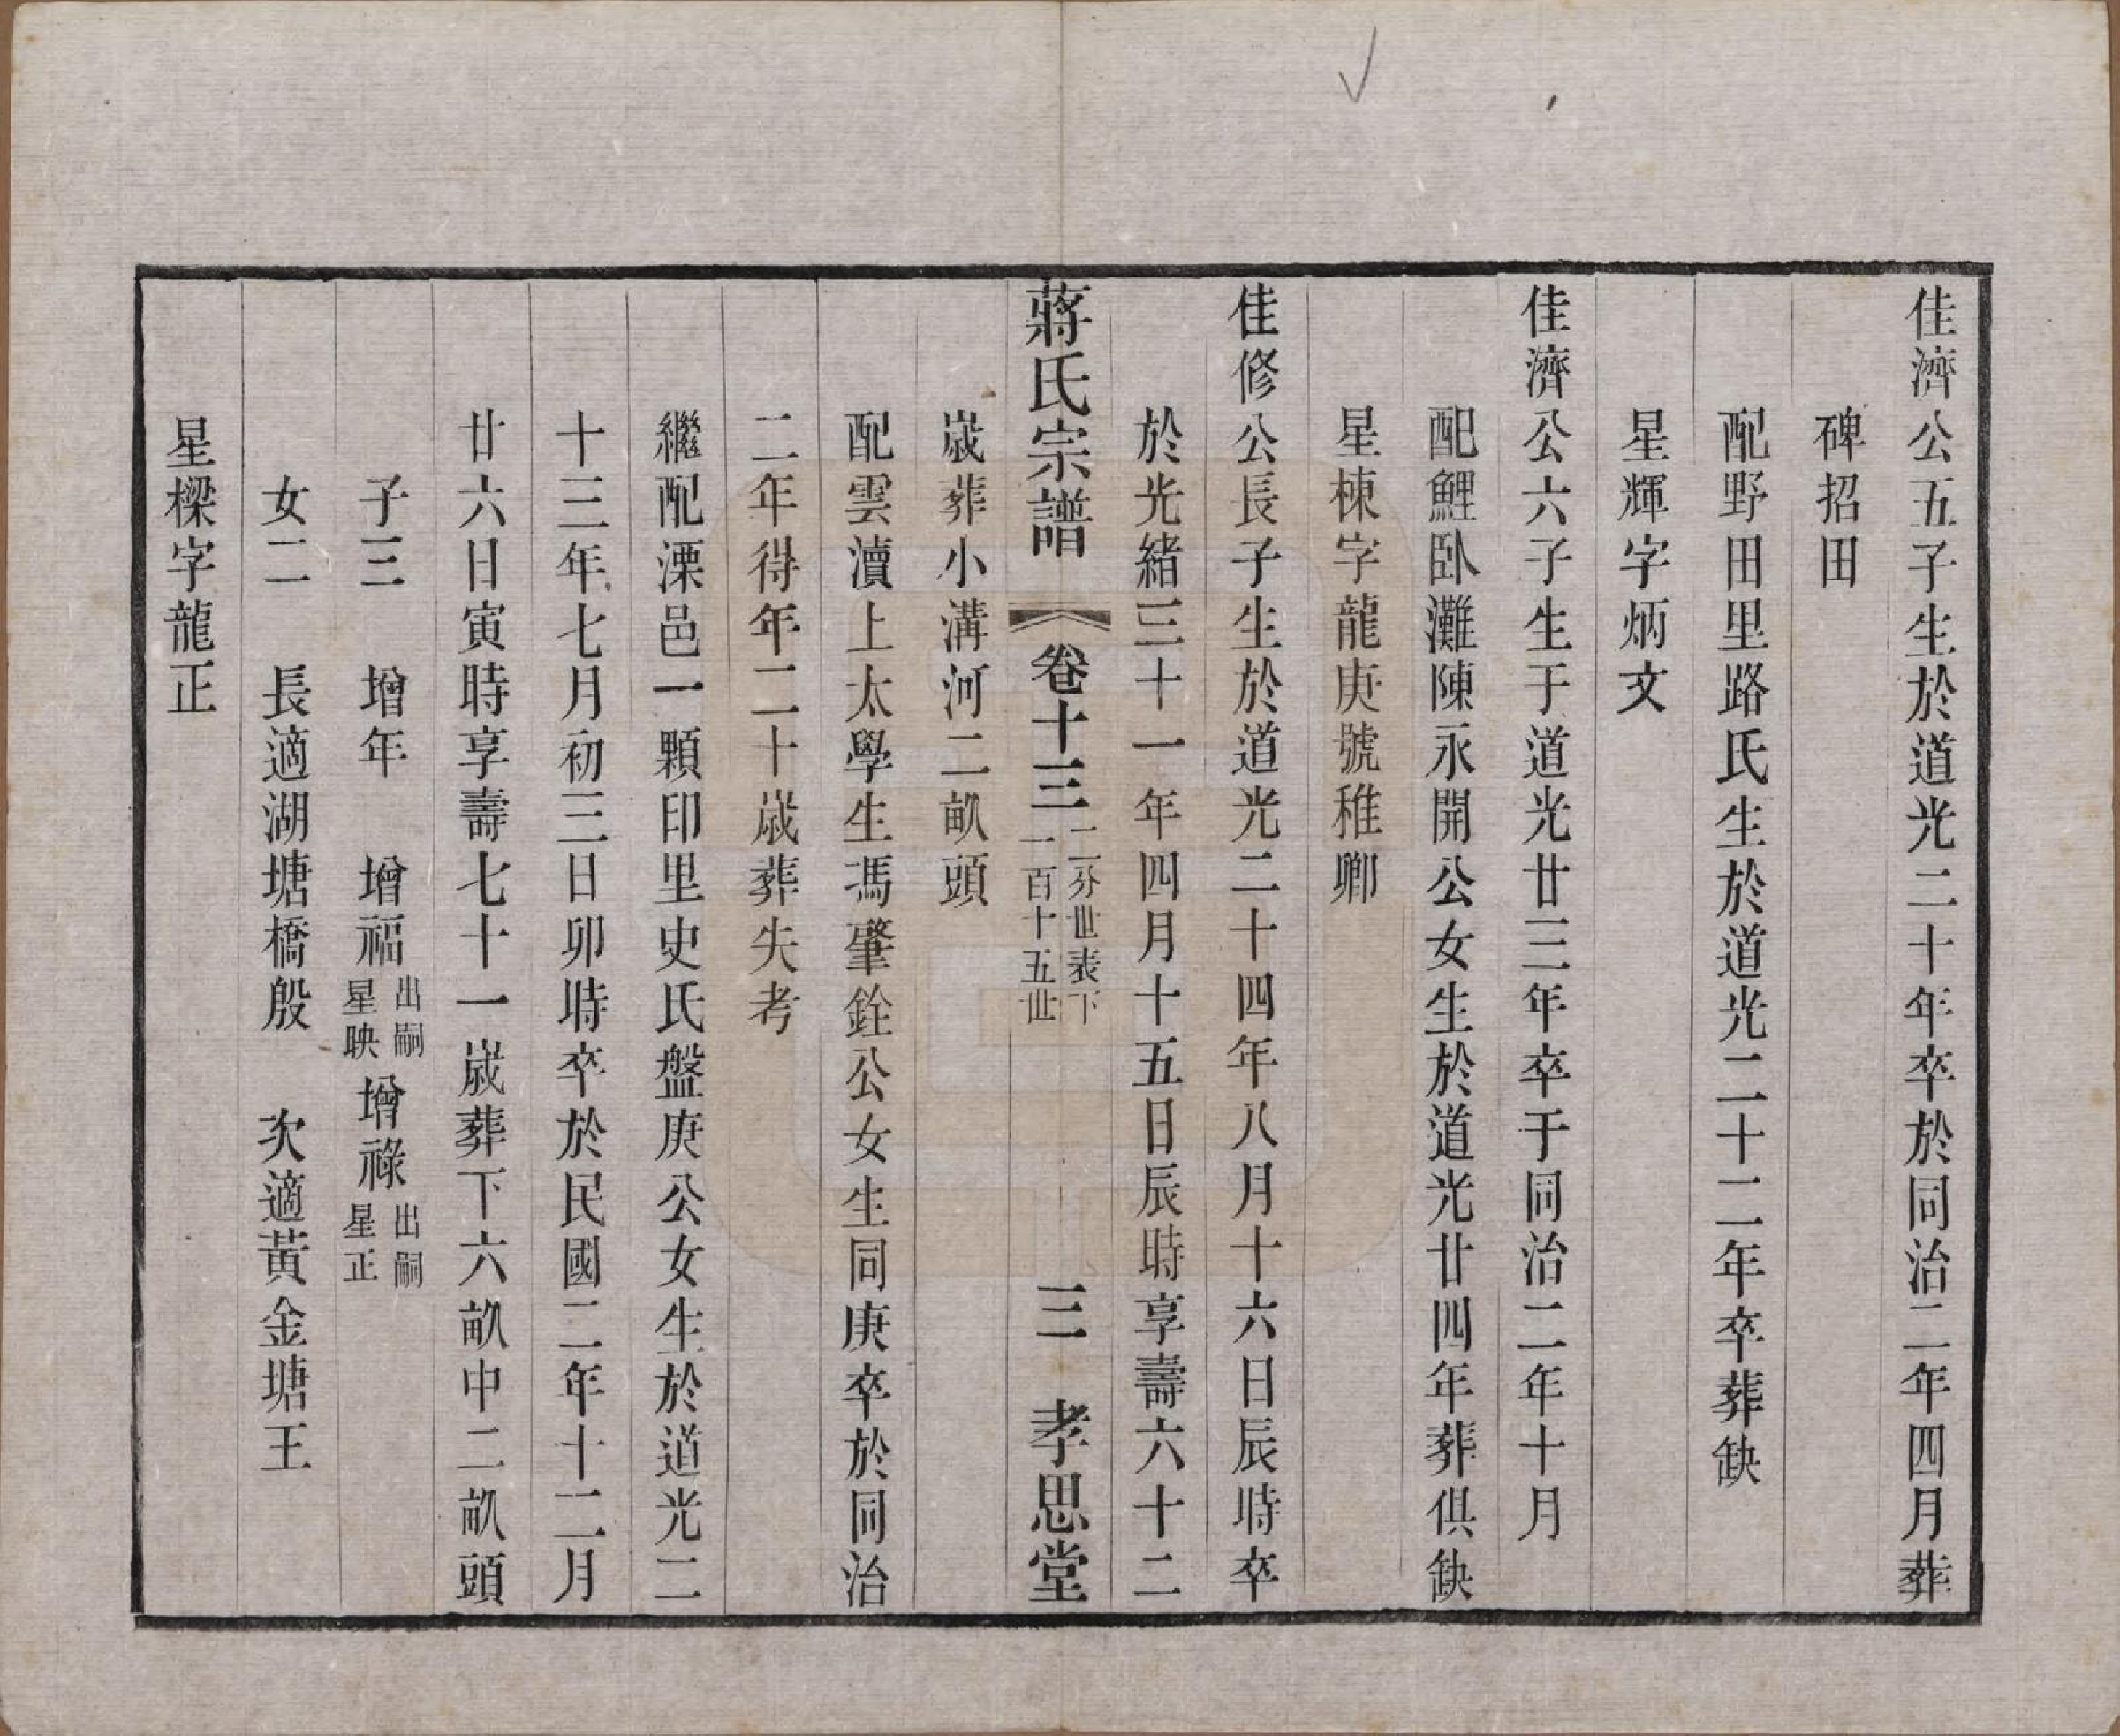 佳濟公五子生於道光二十年卒於同治二年四月葬
碑招田
配野田里路氏生於道光二十二年卒葬缺
星輝字炳文
佳濟公六子生于道光廿三年卒于同治二年十月
配鯉臥灘陳永開公女生於道光廿四年葬俱缺
星棟字龍庚號稚卿
佳修公長子生於道光二十四年八月十六日辰時卒
於光緒三十一年四月十五日辰時享壽六十二
蔣氏宗譜 卷十三 二分世表下 一百十五世 三 孝思堂
歲葬小溝河二畝頭
配雲瀆上太學生馮肇銓公女生同庚卒於同治
二年得年二十歲葬失考
繼配溧邑一顆印里史氏盤庚公女生於道光二
十三年七月初三日卯時卒於民國二年十二月
廿六日寅時享壽七十一歲葬下六畝中二畝頭
子三 增年 增福出嗣星映 增祿出嗣星正
女二 長適湖塘橋殷 次適黃金塘王
星樑字龍正